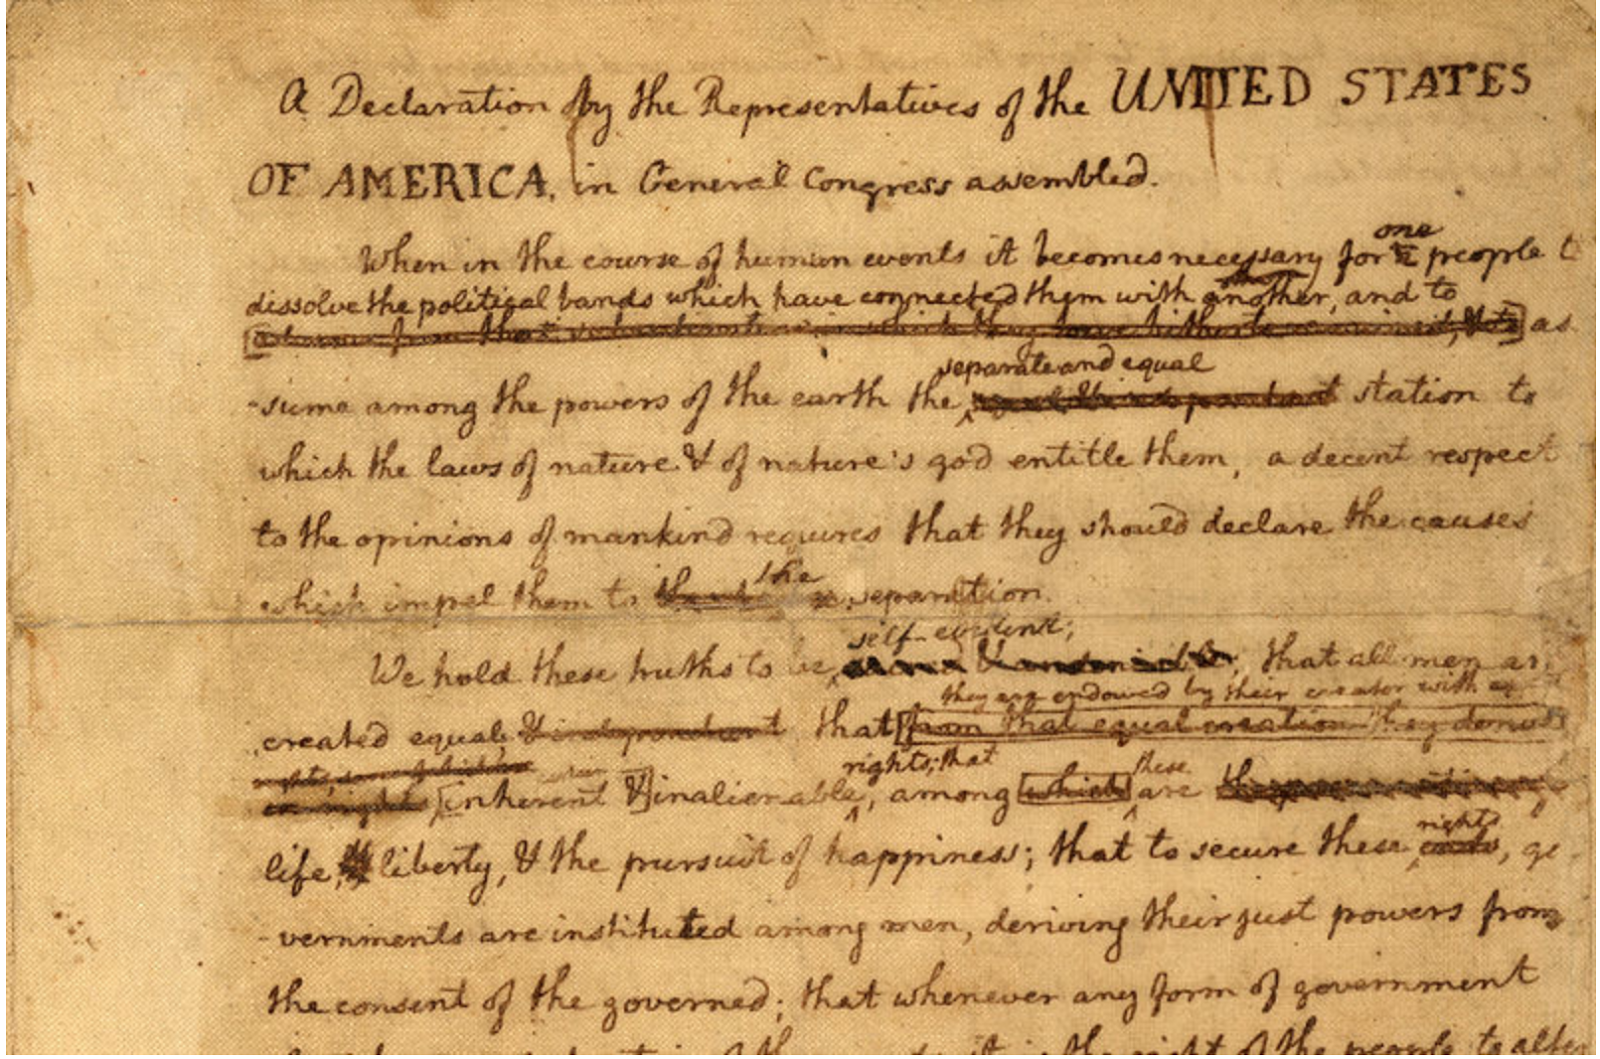 A Declaration by the Representatives of the UNITED STATES
OF AMERICA, in General Congress assembled.
one
When in the course of human events it becomes necessary for people
dissolve the political bands which have connected them with another, and to
as
separate and equal
-sume among the powers of the earth the station to
which the laws of nature & of nature's god entitle them, a decent respect
to the opinions of mankind requires that they should declare the causes
the
which impel them to separation.
self-evident;
We hold these truths to be, sacred & undeniable, that all men
they are endowed by their creator with
created equal & independent that [from that equal creation they
rights; that
these
[inherent &] inalienable, among [which] are
rights
life, liberty, & the pursuit of happiness; that to secure these ends, go
-vernments are instituted among men, deriving their just powers from
the consent of the governed; that whenever any form of government
it is the right of the people to alter